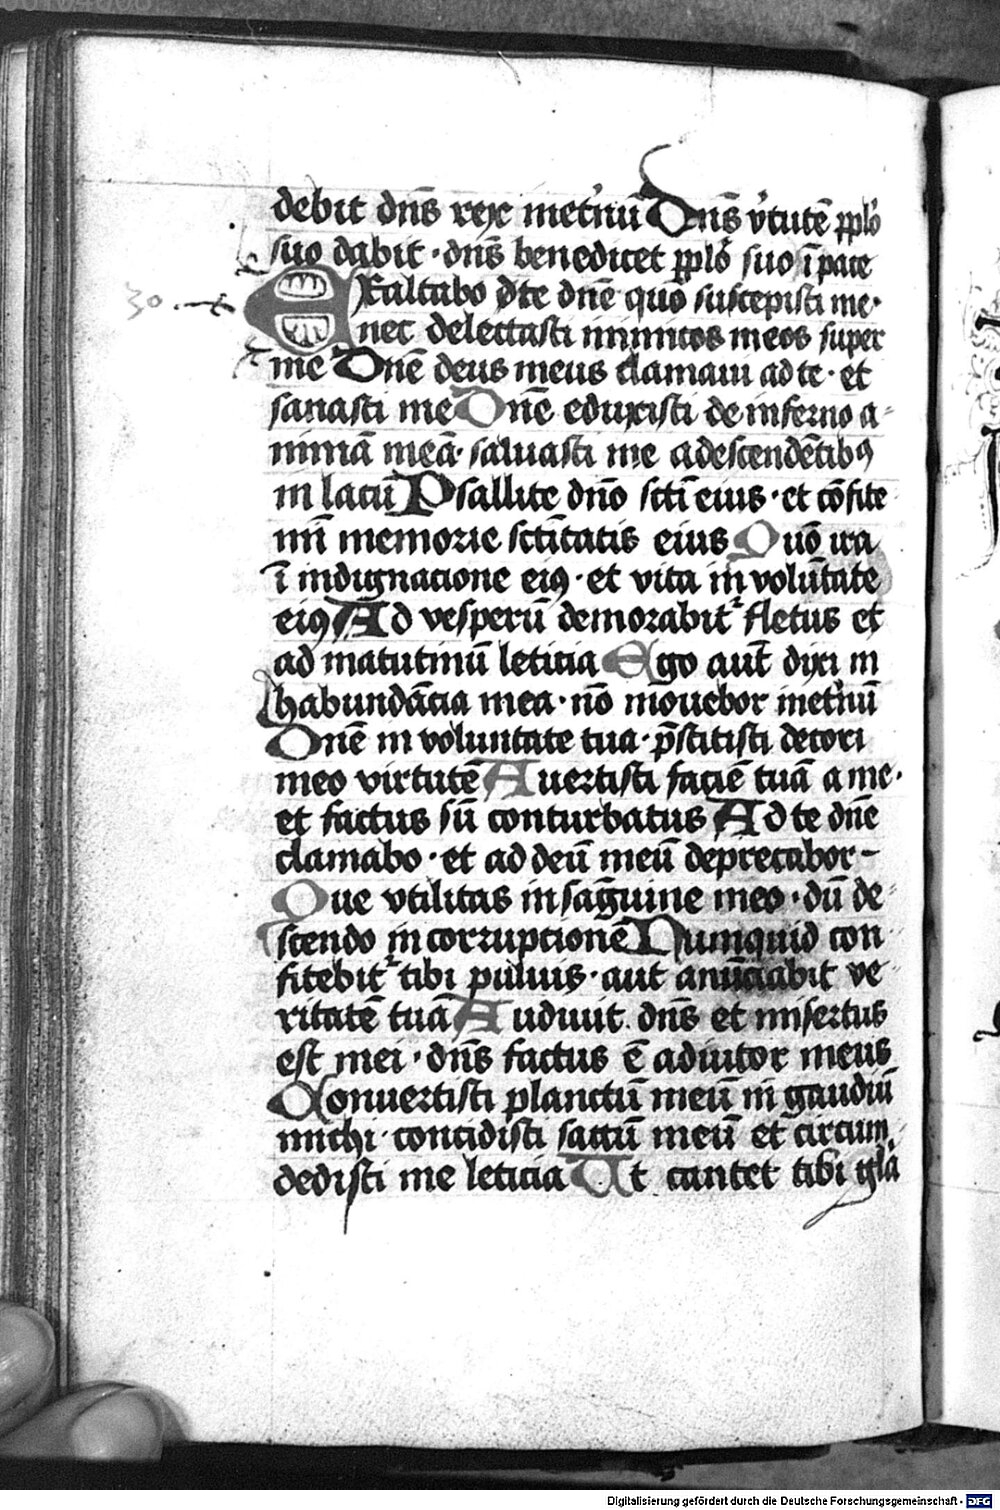 debit dn̄s rex inet̓nū Dn̄s v̓tutē pplo̓
suo dabit · dn̄s benedicet pplo̓ suo ī pace
30 EXaltabo dte dn̄e quō suscepisti me ·
nec delectasti inimicos meos super
me Dn̄e deus meus clamaui ad te · et
sanasti me Dn̄e eduxisti de inferno a-
nimā meā · saluasti me a descendētibꝰ
in lacū Psallite dn̄o scti eius · et cōfite
mī memorie sctitatis eius Quō ira
ī indignacione eiꝰ · et vita in volūtate
eiꝰ Ad vesperū demorabit᷑ fletus et
ad matutinū leticia Ego aut̄ dixi in
habundācia mea · nō mouebor inet̓nū
Dn̄e in voluntate tua · p̄stitisti decori
meo virtutē Auertisti faciē tuā a me ·
et factus sū conturbatus Ad te dn̄e
clamabo · et ad deū meū deprecabor -
Que vtilitas in sāguine meo · dū de-
scendo in corrupcionē Numquid con
fitebit᷑ tibi puluis · aut anūciabit ve
ritatē tuā Audiuit dn̄s et misertus
est mei · dn̄s factus ē adiutor meus
Conuertisti planctū meū in gaudiū
michi · concidisti saccū meū et circum
dedisti me leticia Ut cantet tibi gl̄a
Digitalisierung gefördert durch die Deutsche Forschungsgemeinschaft - DFG